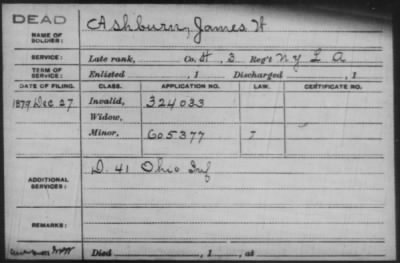 DEAD
NAME OF SOLDIER: Ashburn, James H
SERVICE: Late rank, Co. H. 3 Reg't N Y L A
TERM OF SERVICE: Enlisted , 1 Discharged , 1
DATE OF FILING. CLASS. APPLICATION NO. LAW. CERTIFICATE NO.
1879 Dec 27 Invalid, 324033
Widow,
Minor, 605377 7
ADDITIONAL SERVICES: D. 41 Ohio Inf
REMARKS:
Died , 1 , at